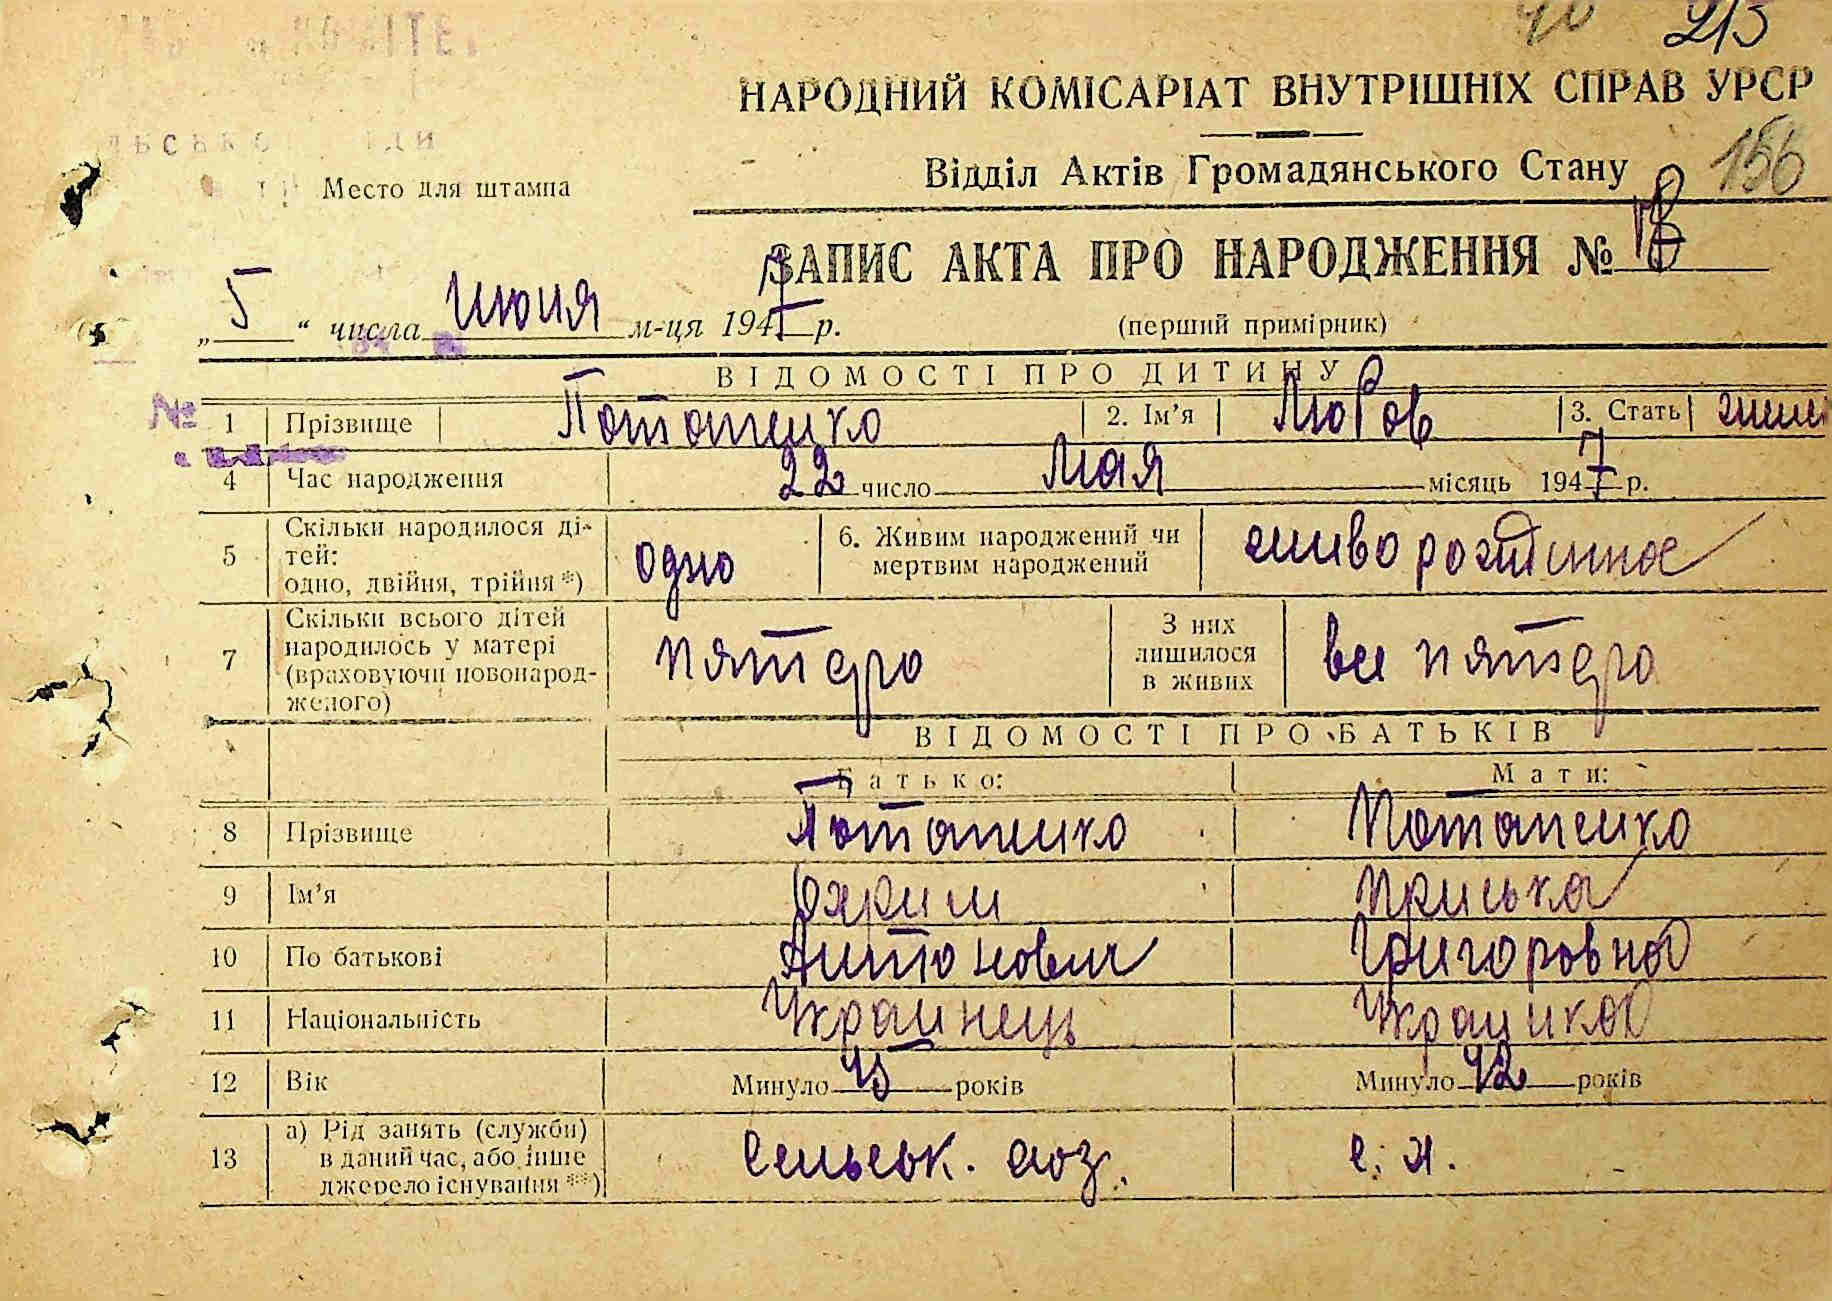 40 215
НАРОДНИЙ КОМІСАРІАТ ВНУТРІШНІХ СПРАВ УРСР
Відділ Актів Громадянського Стану 156
Место для штампа
ЗАПИС АКТА ПРО НАРОДЖЕННЯ №
„5“ числа июня м-ця 1947 р. (перший примірник)
ВІДОМОСТІ ПРО ДИТИНУ
№
1 Прізвище Потапенко 2. Ім’я Любов 3. Стать жен
4 Час народження 22 число мая місяць 1947 р.
5 Скільки народилося ді-
тей:
одно, двійня, трійня *) одно 6. Живим народжений чи
мертвим народжений живорожденное
7 Скільки всього дітей
народилось у матері
(враховуючи новонарод-
женого) пятеро З них
лишилося
в живих все пятеро
ВІДОМОСТІ ПРО БАТЬКІВ
Батько: Мати:
8 Прізвище Потапенко Потапенко
9 Ім’я Охрим Приська
10 По батькові Антонович Григоровна
11 Національність Украинець Украинка
12 Вік Минуло 45 років Минуло 42 років
13 а) Рід занять (служби)
в даний час, або інше
джерело існування **) сельськ. хоз. с. х.